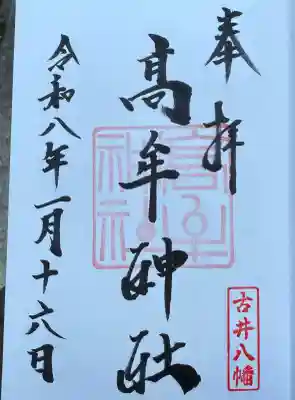 奉拝
髙牟神社
古井八幡
令和八年一月十六日